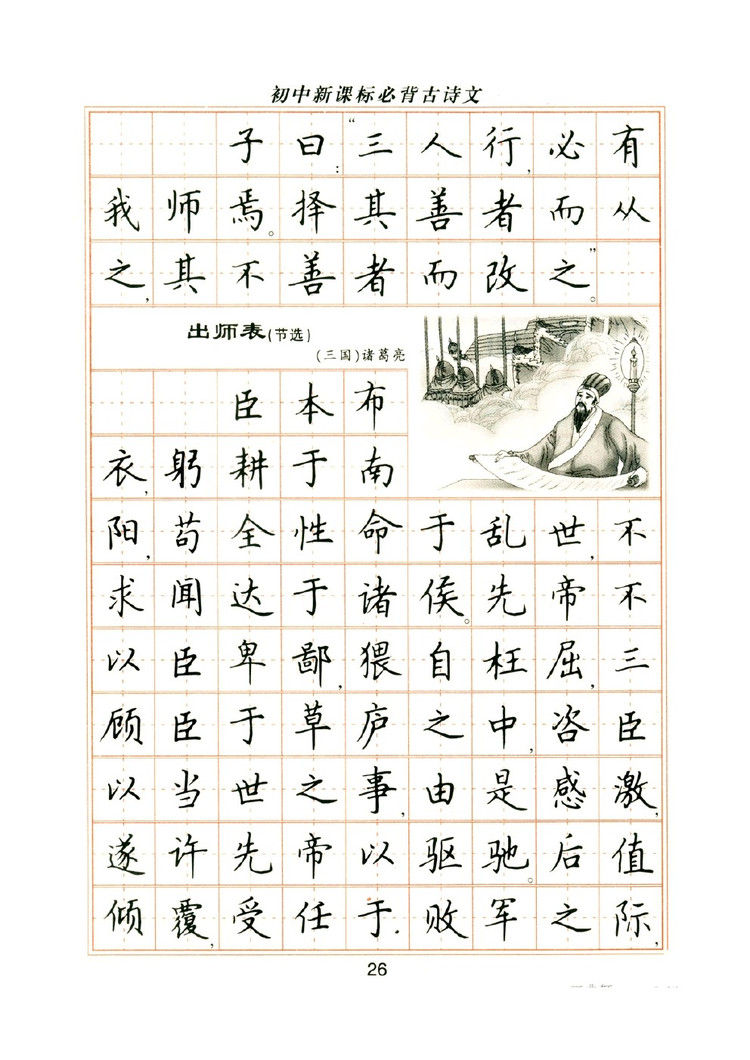 初中新课标必背古诗文
子曰:“三人行,必有
我师焉。择其善者而从
之,其不善者而改之。”
出师表(节选)
(三国)诸葛亮
臣本布
衣,躬耕于南
阳,苟全性命于乱世,不
求闻达于诸侯。先帝不
以臣卑鄙,猥自枉屈,三
顾臣于草庐之中,咨臣
以当世之事,由是感激,
遂许先帝以驱驰。后值
倾覆,受任于.败军之际,
26